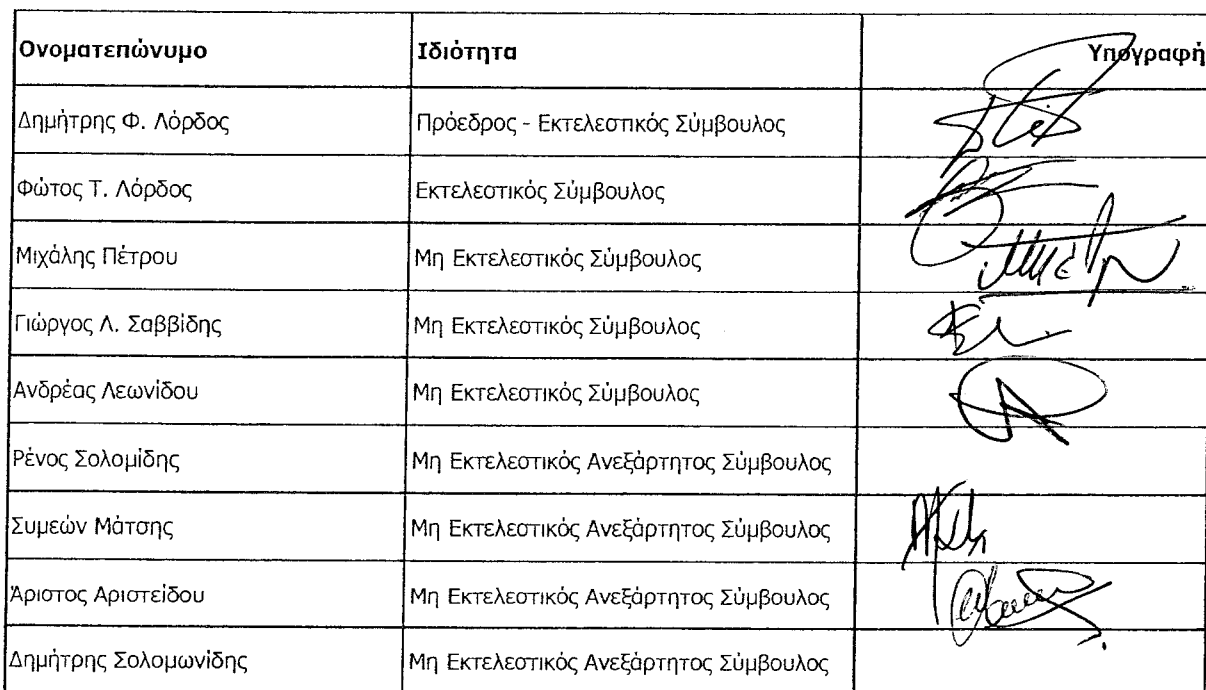 Ονοματεπώνυμο Ιδιότητα Υπογραφή
Δημήτρης Φ. Λόρδος Πρόεδρος - Εκτελεστικός Σύμβουλος
Φώτος Τ. Λόρδος Εκτελεστικός Σύμβουλος
Μιχάλης Πέτρου Μη Εκτελεστικός Σύμβουλος
Γιώργος Λ. Σαββίδης Μη Εκτελεστικός Σύμβουλος
Ανδρέας Λεωνίδου Μη Εκτελεστικός Σύμβουλος
Ρένος Σολομίδης Μη Εκτελεστικός Ανεξάρτητος Σύμβουλος
Συμεών Μάτσης Μη Εκτελεστικός Ανεξάρτητος Σύμβουλος
Άριστος Αριστείδου Μη Εκτελεστικός Ανεξάρτητος Σύμβουλος
Δημήτρης Σολομωνίδης Μη Εκτελεστικός Ανεξάρτητος Σύμβουλος